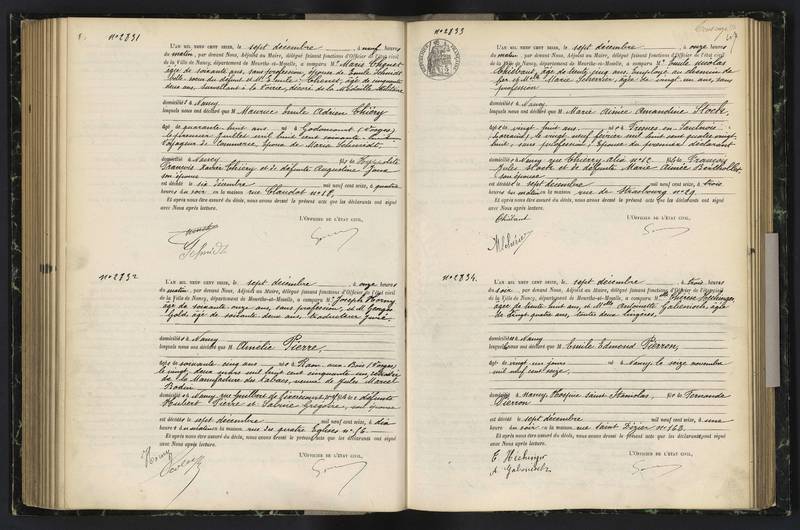 N° 2831
L'AN MIL NEUF CENT SEIZE, le sept décembre, à neuf heures
du matin, par devant Nous, Adjoint au Maire, délégué faisant fonctions d'Officier de l'état civil
de la Ville de Nancy, département de Meurthe-et-Moselle, a comparu M.
âgée de soixante ans, sans profession, épouse de Emile Schmidt
deux ans, surveillant à la Voirie, décoré de la Médaille Militaire
domiciliés à Nancy
lesquels nous ont déclaré que M. Maurice Emile Adrien Thiéry
âgé de quarante huit ans né à (Vosges)
mil huit cent soixante
Voyageur de Commerce, époux de Maria Schmidt,
domicilié à Nancy fils de Hippolyte
François Xavier Thiéry et de défunte Augustine
son épouse
est décédé le six décembre mil neuf cent seize, à quatre
heures du soir en la maison rue Claudot n° 18,
Et après nous être assuré du décès, nous avons dressé le présent acte que les déclarants ont signé
avec Nous après lecture.
L'OFFICIER DE L'ÉTAT CIVIL,
Schmidt
N° 2832
L'AN MIL NEUF CENT SEIZE, le sept décembre à onze heures
du matin, par devant Nous, Adjoint au Maire, délégué faisant fonctions d'Officier de l'état civil
de la Ville de Nancy, département de Meurthe-et-Moselle, a comparu M. Joseph Horny
âgé de soixante onze ans, sans profession, et M. Georges
Gold, âgé de soixante deux ans, traducteur juré,
domiciliés à Nancy
lesquels nous ont déclaré que M. Amélie Pierre,
âgée de soixante cinq ans née à Raon-aux-Bois (Vosges)
le vingt deux mars mil huit cent cinquante un, retraitée
de la Manufacture des tabacs, veuve de Jules Marcel
Bodin
domiciliée à Nancy, rue Guilbert de Pixérécourt fille de défunts
Hubert Pierre et Sabine Grégoire, son épouse
est décédée le sept décembre mil neuf cent seize, à dix
heures du matin en la maison rue des quatre Eglises n° 16
Et après nous être assuré du décès, nous avons dressé le présent acte que les déclarants ont signé
avec Nous après lecture.
L'OFFICIER DE L'ÉTAT CIVIL,
Horny
N° 2833
L'AN MIL NEUF CENT SEIZE, le sept décembre, à onze heures
du matin, par devant Nous, Adjoint au Maire, délégué faisant fonctions d'Officier de l'état civil
de la Ville de Nancy, département de Meurthe-et-Moselle, a comparu M. Emile Nicolas
Thiébaut, âgé de trente cinq ans, Employé au chemin de
fer et Melle Marie Scherrer, âgée de vingt un ans, sans
profession
domiciliés à Nancy
lesquels nous ont déclaré que M. Marie Aimée Amandine Stock,
âgée de vingt huit ans, née à Fresnes en Saulnois
mil huit cent quatre vingt
huit, sans profession, Epouse du premier déclarant
domiciliée à Nancy rue Thiéry Alix n° 12 fille de François
Jules Stock et de défunte Marie Aimée
son épouse
est décédée le sept décembre mil neuf cent seize, à trois
heures du matin en la maison rue de Strasbourg n° 29
Et après nous être assuré du décès, nous avons dressé le présent acte que les déclarants ont signé
avec Nous après lecture.
L'OFFICIER DE L'ÉTAT CIVIL,
Thiébaut
N° 2834.
L'AN MIL NEUF CENT SEIZE, le sept décembre à trois heures
du soir, par devant Nous, Adjoint au Maire, délégué faisant fonctions d'Officier de l'état civil
de la Ville de Nancy, département de Meurthe-et-Moselle, a comparu M. Thérèse Hechinger
âgée de trente huit ans, et Melle Antoinette Gabenisch, âgée
de vingt quatre ans, toutes deux lingères,
domiciliées à Nancy
lesquelles nous ont déclaré que M. Emile Edmond Pierron,
âgé de vingt un jours né à Nancy, le seize novembre
mil neuf cent seize,
domicilié à Nancy, Hospice Saint Stanislas, fils de Fernande
Pierron
est décédé le sept décembre mil neuf cent seize, à une
heure du soir en la maison rue Saint Dizier n° 163
Et après nous être assuré du décès, nous avons dressé le présent acte que les déclarants ont signé
avec Nous après lecture.
L'OFFICIER DE L'ÉTAT CIVIL,
T Hechinger
A Gabenisch